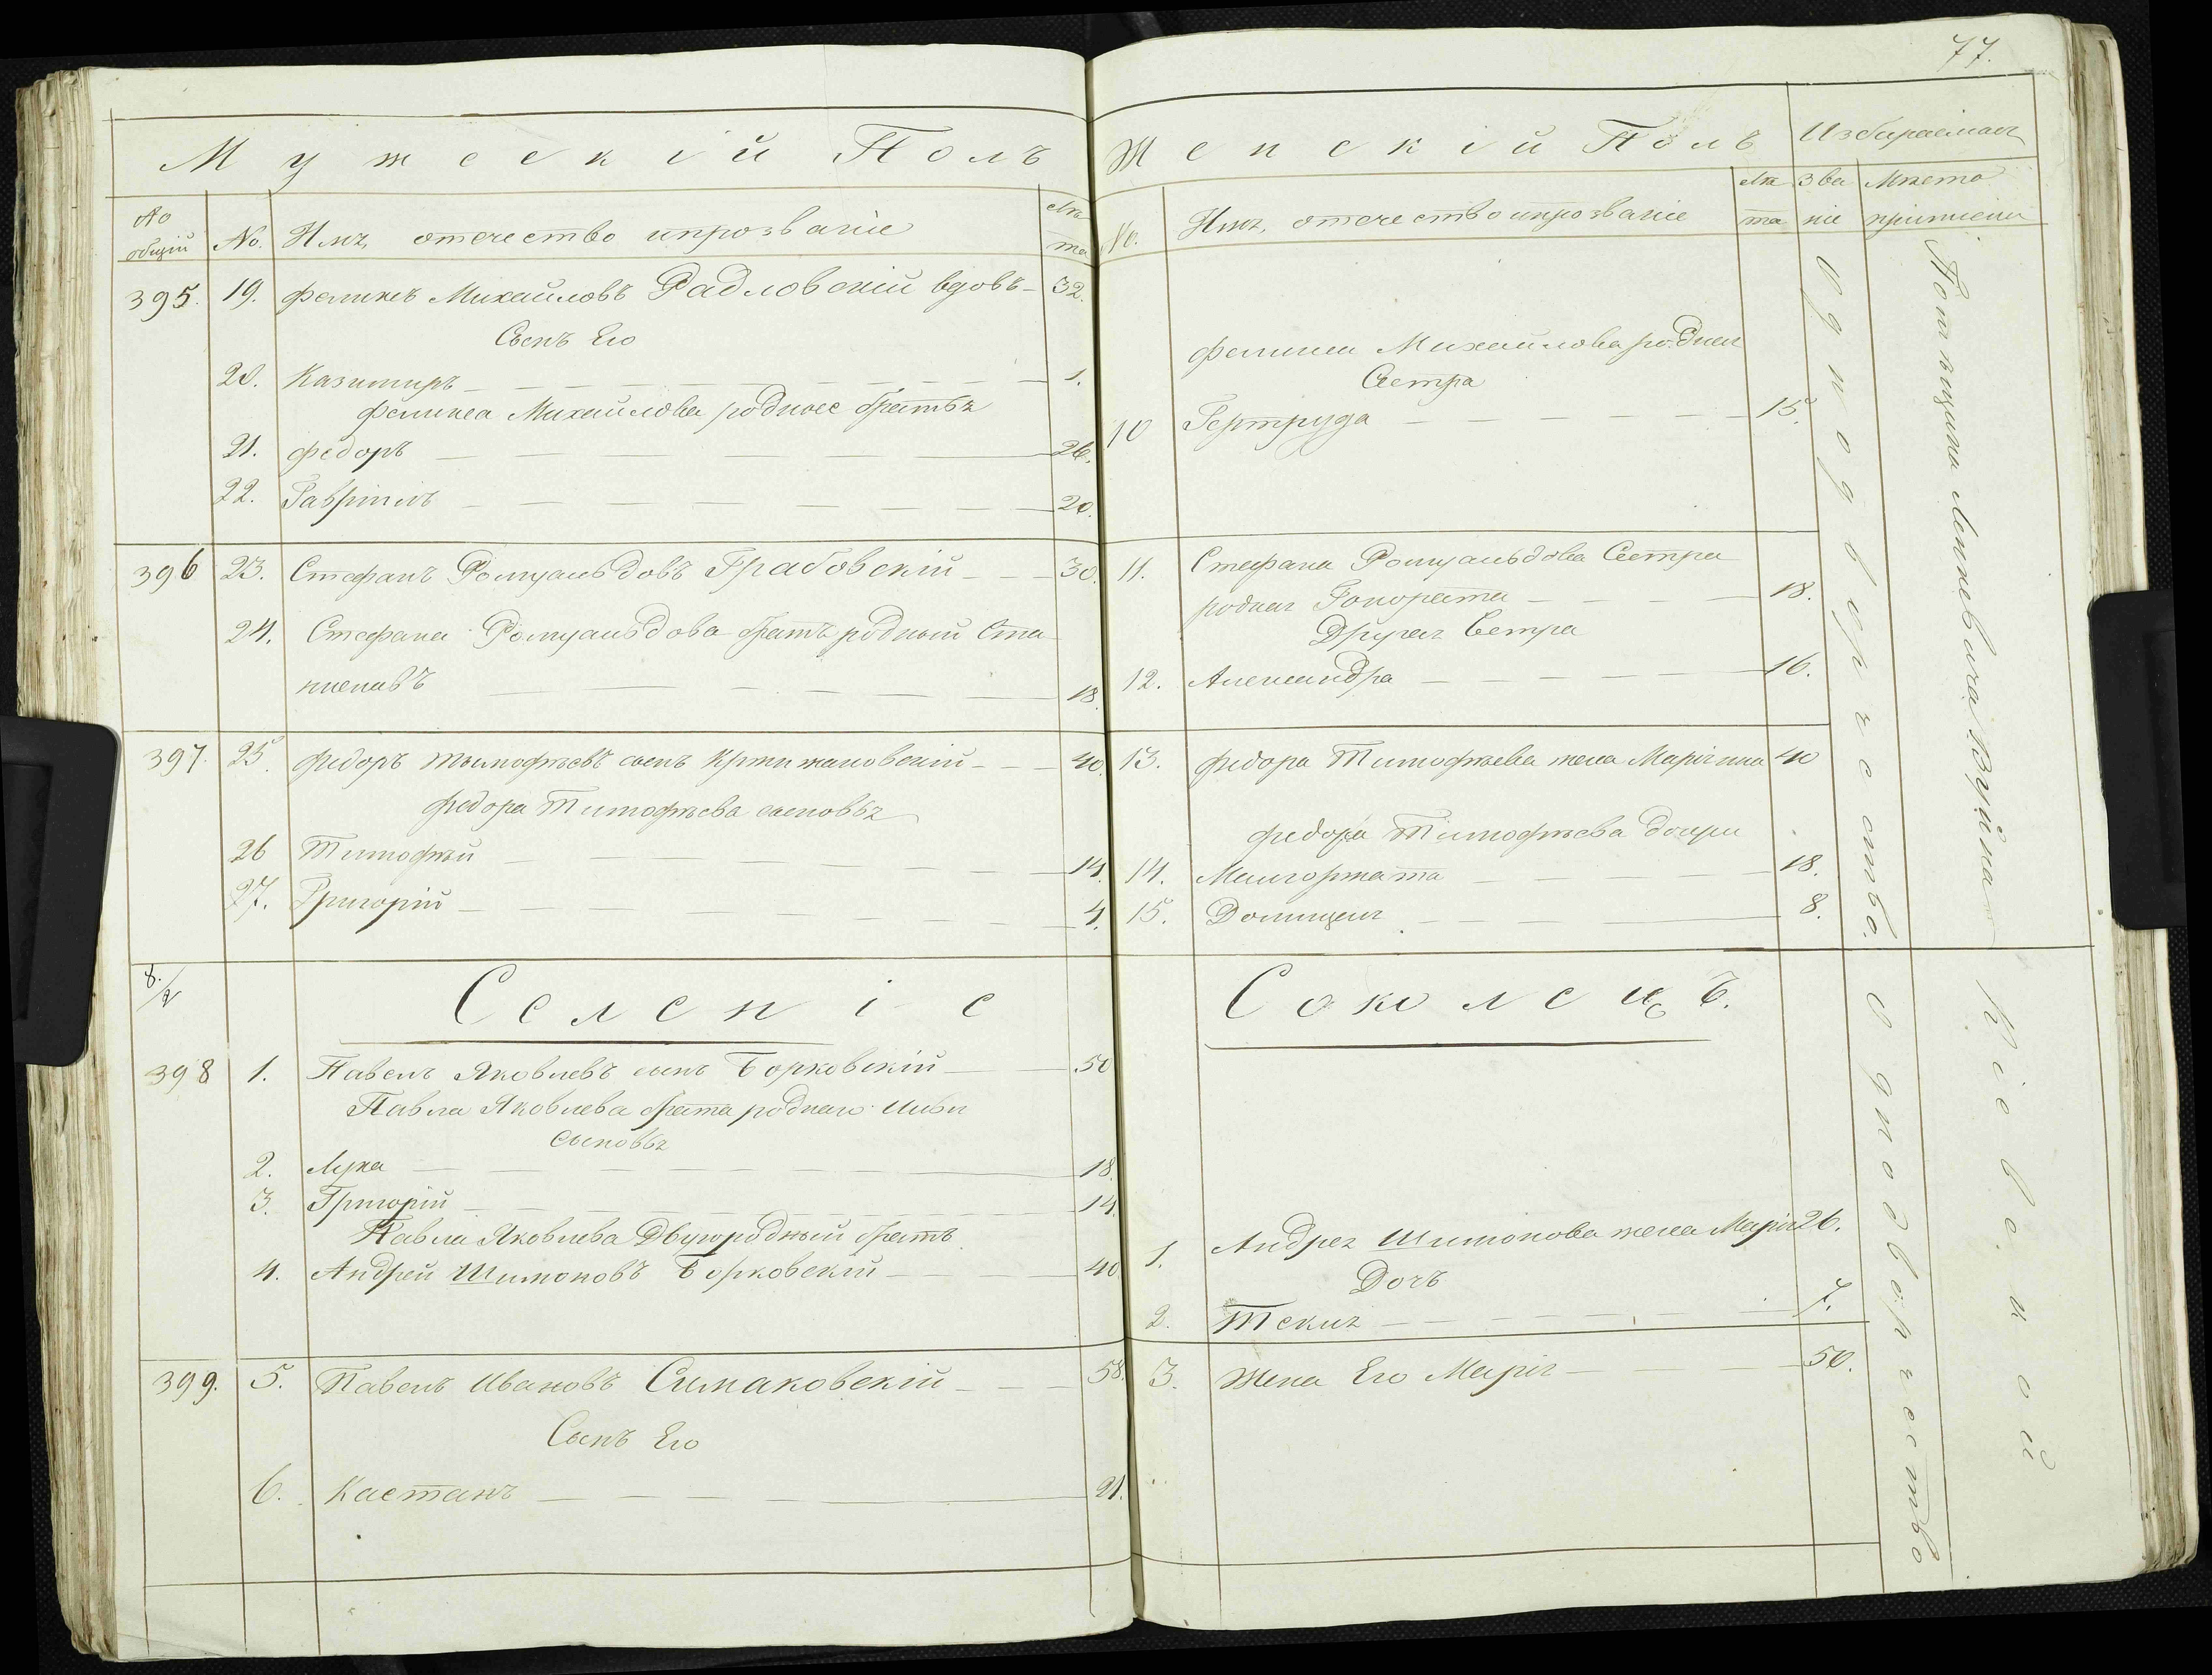 77.
Мужескій Полъ
№ общій
№.
Имя, отечество и прозваніе
Лѣта
395.
19.
Феликсъ Михайловъ Радловскій вдовъ
32.
Сынъ Его
20.
Казимиръ
1.
Феликса Михайлова родные братья
21.
Федоръ
26.
22.
Гавріилъ
20.
396
23.
Стефанъ Ромуальдовъ Грабовскій
30.
24.
Стефана Ромуальдова братъ родный Ста-
ниславъ
18.
397.
25.
Федоръ Тимофѣевъ сынъ
40.
Федора Тимофѣева сыновья
26
Тимофѣй
14.
27.
Григорій
4.
8/2
Селеніе
398
1.
Павелъ Яковлевъ сынъ Борковскій
50
Павла Яковлева брата роднаго
сыновья
2.
Лука
18
3.
Григорій
14.
Павла Яковлева Двуюродный братъ
4.
Андрей Шимоновъ Борковскій
40
399.
5.
Павелъ Ивановъ Симаковскій
58.
Сынъ Его
6.
Каетанъ
21.
Женскій Полъ
Избираемая
№.
Имя, отечество и прозваніе
Лѣта
Званіе
Мѣсто приписки
Феликса Михайлова родная
Сестра
10
Гертруда
15.
11.
Стефана Ромуальдова Сестра
родная Гонората
18.
Другая Сестра
12.
Александра
16.
13.
Федора Тимофѣева жена Маріанна
40
Федора Тимофѣева дочери
14.
Малгоржата
18.
15.
Домицея
8.
Соколецъ.
1.
Андрея Шимонова жена Марія
26.
Дочь
2.
Текля
7.
3.
Жена Его Марія
50.
Однодворчество.
Однодворчество
Кіевской